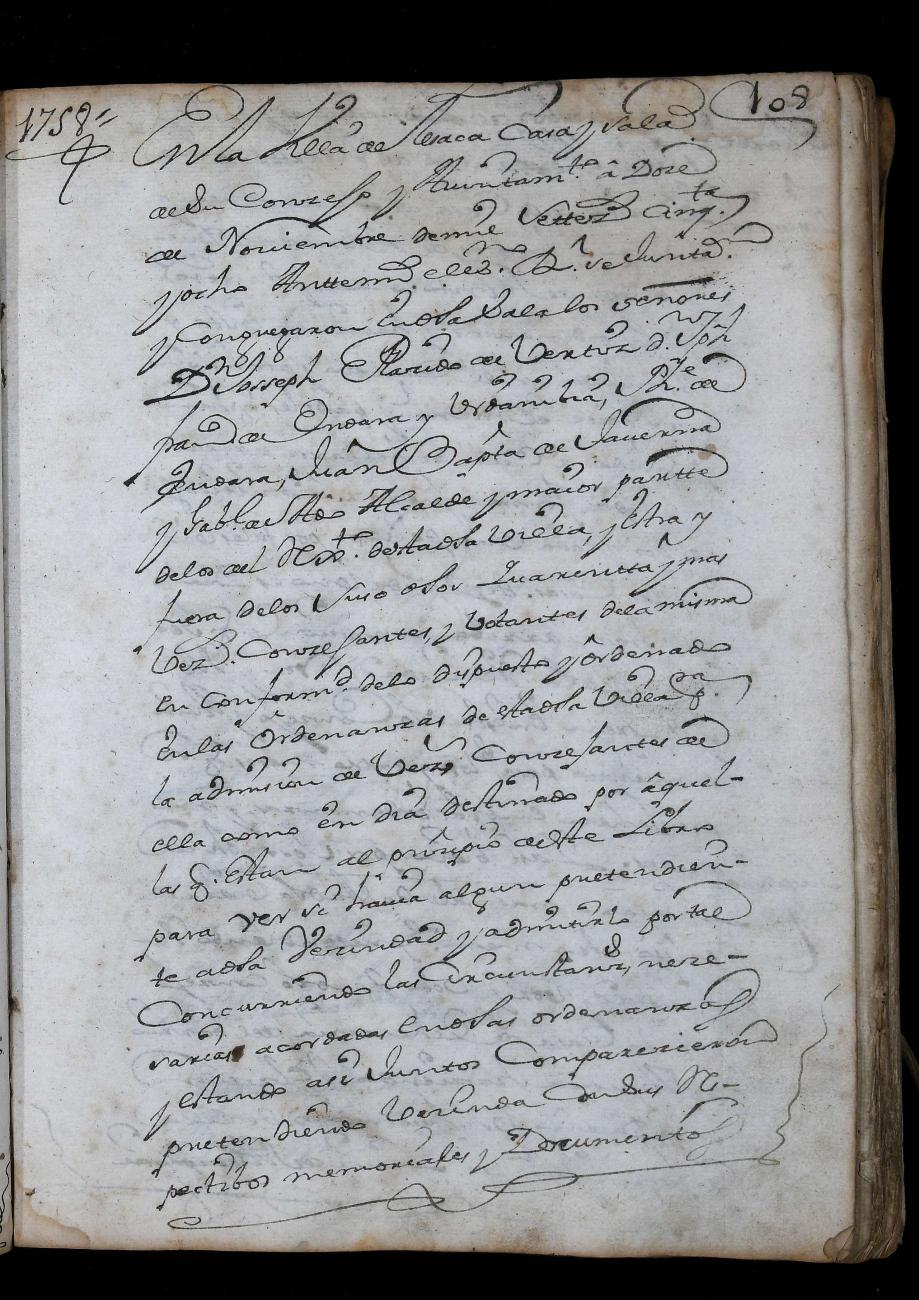 1758
108
En la Villa de Lesaca Casa y Sala
de Su Conzejo y Ayuntam.to â Doze
de Noviembre de mil Settez.s Cinq.ta
y ocho Antte mi el es.no R.l se Junta.n
y Congregaron En dha Sala los Señores
D.n Josseph de Vertiz d.n
de Endara y Vrdanibia,
Endara, Juan Bapta de Taverna
Alcalde y maior partte
de los del Rex.to desta dha Villa, y Estra y
fuera de los Suso dhos Quarentta y mas
Vez.s Conzejantes, y Votantes de la misma
En Conform.d de lo dispuesto y Ordenado
En las Ordenanzas de esta dha Villa p.a
la admision de Vez.s Conzejantes de
ella como En dia destinado por âquel-
las q. Estan al prinzipio deeste Libro
para ver si havia algun pretendien-
te a dha Vezindad y admitirlo por tal
Concurriendo las Circunstanz.s neze-
sarias acordadas En dhas ordenanzas
y Estando asi Juntos Comparezieron
pretendiendo Vezinda Con Sus Res-
pectibos memoriales y Documentos